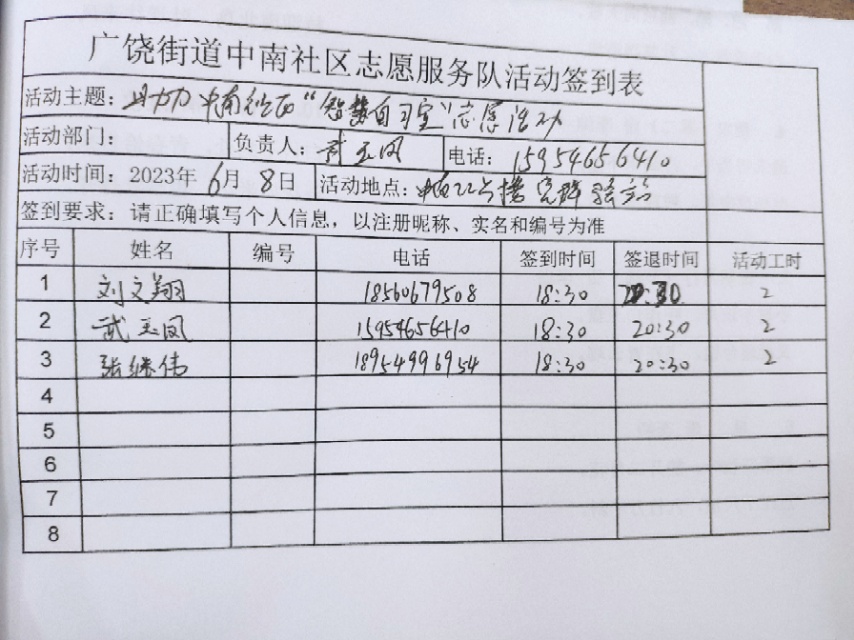 广饶街道中南社区志愿服务队活动签到表
活动主题：助力中南社区“智慧自习室”志愿活动
活动部门： 负责人：武玉凤 电话：15954656410
活动时间：2023年6月8日 活动地点：中南22号楼 驿站
签到要求：请正确填写个人信息，以注册昵称、实名和编号为准
序号 姓名 编号 电话 签到时间 签退时间 活动工时
1 刘文翔 18560679508 18:30 20:30 2
2 武玉凤 15954656410 18:30 20:30 2
3 张继伟 18954996954 18:30 20:30 2
4
5
6
7
8